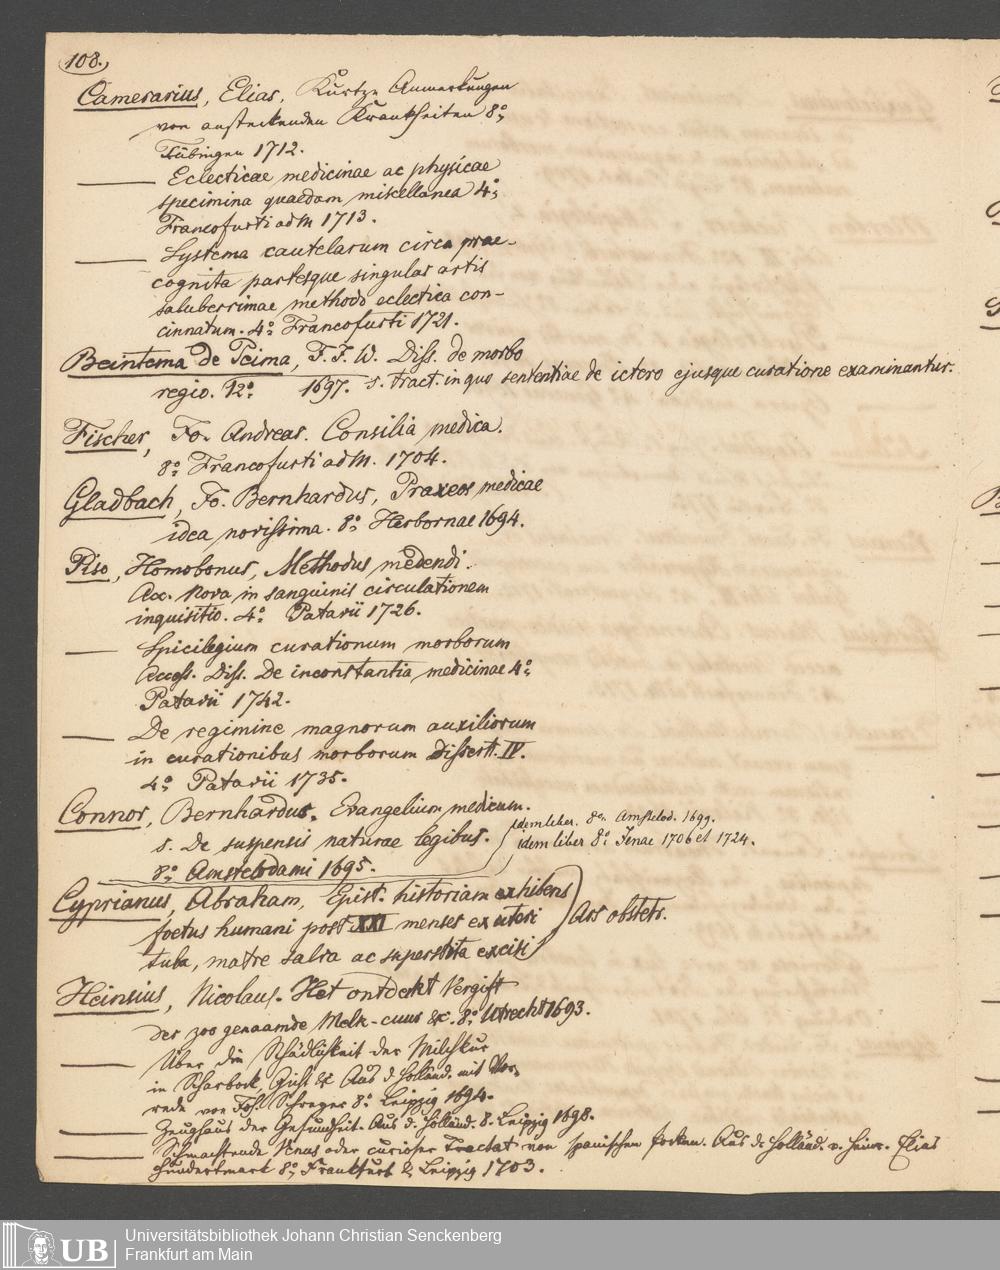 108.
Camerarius, Elias. Kurtze Anmerkungen
von ansteckenden Krankheiten 8°,
Tübingen 1712.
— Eclecticae medicinae ac physicae
specimina quaedam miscellanea 4°,
Francofurti ad M 1713.
— Systema cautelarum circa prae-
cognita partesque singulas artis
saluberrimae methodo eclectica con-
cinnatum. 4°. Francofurti 1721.
Beintema de Peima, I. I. W. Diss. de morbo
regio. 12° 1697. s. tract. in quo sententiae de ictero ejusque curatione examinantur.
Fischer, Jo. Andreas. Consilia medica.
8°. Francofurti ad M. 1704.
Gladbach, Jo. Bernhardus, Praxeos medicae
idea novissima. 8°. Herbornae 1694.
Piso, Homobonus, Methodus medendi.
Acc. Nova in sanguinis circulationem
inquisitio. 4°. Patavii 1726.
— Spicilegium curationum morborum
Access. Diss. De inconstantia medicinae 4°,
Patavii 1742.
— De regimine magnorum auxiliorum
in curationibus morborum Dissert. IV.
4°. Patavii 1735.
Connor, Bernhardus. Evangelium medicum.
s. De suspensis naturae legibus. idem liber. 8°. Amstelod. 1699.
idem liber 8°. Jenae 1706 et 1724.
8°. Amstelodami 1695.
Cyprianus, Abraham, Epist. historiam exhibens
foetus humani post XXI menses ex uteri Ars obstetr.
tuba, matre salva ac superstite excisi
Heinsius, Nicolaus. Het ontdekt Vergift
der zoo genaamde Melk-cuur &c. 8°. Utrecht 1693.
— Über die Schädlichkeit der Milchkur
in Scharbock, Gicht &c Aus d. Holländ. mit Vor-
rede von Joh. Schreyer 8°. Leipzig 1694.
— Zeughaus der Gesundheit. Aus d. Holländ. 8. Leipzig 1698.
— Schmachtende Venus oder curioser Tractat von spanischen Pocken. Aus d. Holländ. v. Heinr. Elias
Hundertmark 8°, Frankfurt & Leipzig 1703.
UB
Universitätsbibliothek Johann Christian Senckenberg
Frankfurt am Main